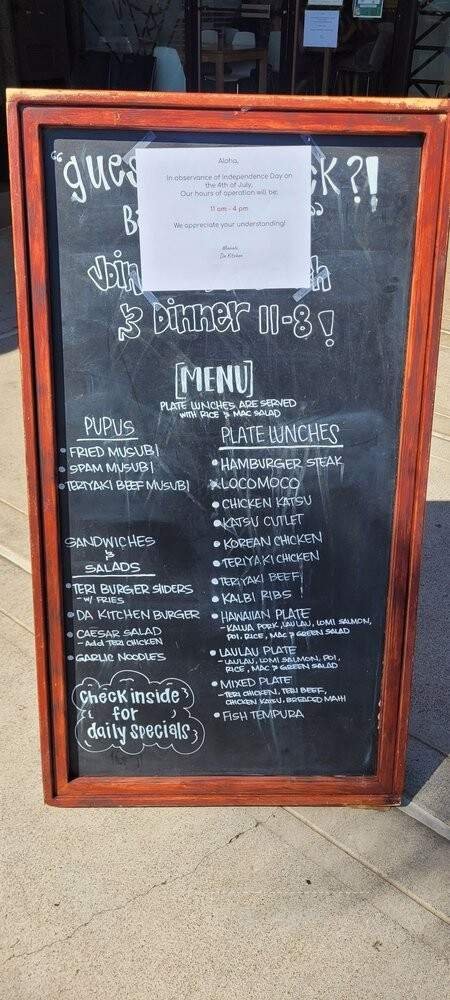 Aloha,
In observance of Independence Day on
the 4th of July,
Our hours of operation will be:
11 am - 4 pm
We appreciate your understanding!
Da Kitchen
& DINNER 11-8!
[MENU]
PLATE LUNCHES ARE SERVED
WITH RICE & MAC SALAD
PUPUS
• FRIED MUSUBI
• SPAM MUSUBI
• TERIYAKI BEEF MUSUBI
SANDWICHES
&
SALADS
• TERI BURGER SLIDERS
- W/ FRIES
• DA KITCHEN BURGER
• CAESAR SALAD
- Add TERI CHICKEN
• GARLIC NOODLES
Check inside
for
daily specials
PLATE LUNCHES
• HAMBURGER STEAK
LOCOMOCO
• CHICKEN KATSU
• KATSU CUTLET
• KOREAN CHICKEN
• TERIYAKI CHICKEN
• TERIYAKI BEEF
• KALBI RIBS !
• HAWAIIAN PLATE
- KALUA PORK, LAULAU, LOMI SALMON,
POI, RICE, MAC & GREEN SALAD
• LAULAU PLATE
- LAULAU, LOMI SALMON, POI,
RICE, MAC & GREEN SALAD
• MIXED PLATE
- TERI CHICKEN, TERI BEEF,
CHICKEN KATSU, BREADED MAHI
• FISH TEMPURA